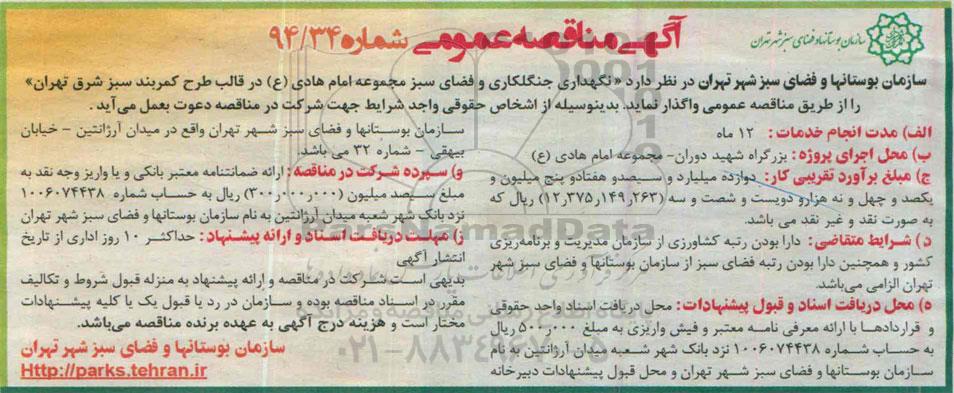 سازمان بوستانها و فضای سبز شهر تهران
آگهی مناقصه عمومی شماره ۹۴/۳۴
سازمان بوستانها و فضای سبز شهر تهران در نظر دارد «نگهداری جنگلکاری و فضای سبز مجموعه امام هادی (ع) در قالب طرح کمربند سبز شرق تهران»
را از طریق مناقصه عمومی واگذار نماید. بدینوسیله از اشخاص حقوقی واجد شرایط جهت شرکت در مناقصه دعوت بعمل می‌آید.
الف) مدت انجام خدمات: ۱۲ ماه
ب) محل اجرای پروژه: بزرگراه شهید دوران- مجموعه امام هادی (ع)
ج) مبلغ برآورد تقریبی کار: دوازده میلیارد و سیصدو هفتادو پنج میلیون و
یکصد و چهل و نه هزارو دویست و شصت و سه (۱۲٫۳۷۵٫۱۴۹٫۲۶۳) ریال که
به صورت نقد و غیر نقد می باشد.
د) شرایط متقاضی: دارا بودن رتبه کشاورزی از سازمان مدیریت و برنامه‌ریزی
کشور و همچنین دارا بودن رتبه فضای سبز از سازمان بوستانها و فضای سبز شهر
تهران الزامی می‌باشد.
ه) محل دریافت اسناد و قبول پیشنهادات: محل دریافت اسناد واحد حقوقی
و قراردادها با ارائه معرفی نامه معتبر و فیش واریزی به مبلغ ۵۰۰٫۰۰۰ ریال
به حساب شماره ۱۰۰۶۰۷۴۴۳۸ نزد بانک شهر شعبه میدان آرژانتین به نام
سازمان بوستانها و فضای سبز شهر تهران و محل قبول پیشنهادات دبیرخانه
سازمان بوستانها و فضای سبز شهر تهران واقع در میدان آرژانتین – خیابان
بیهقی – شماره ۳۲ می باشد.
و) سپرده شرکت در مناقصه: ارائه ضمانتنامه معتبر بانکی و یا واریز وجه نقد به
مبلغ سیصد میلیون (۳۰۰٫۰۰۰٫۰۰۰) ریال به حساب شماره ۱۰۰۶۰۷۴۴۳۸
نزد بانک شهر شعبه میدان آرژانتین به نام سازمان بوستانها و فضای سبز شهر تهران
ز) مهلت دریافت اسناد و ارائه پیشنهاد: حداکثر ۱۰ روز اداری از تاریخ
انتشار آگهی
بدیهی است شرکت در مناقصه و ارائه پیشنهاد به منزله قبول شروط و تکالیف
مقرر در اسناد مناقصه بوده و سازمان در رد یا قبول یک یا کلیه پیشنهادات
مختار است و هزینه درج آگهی به عهده برنده مناقصه می‌باشد.
سازمان بوستانها و فضای سبز شهر تهران
Http://parks.tehran.ir